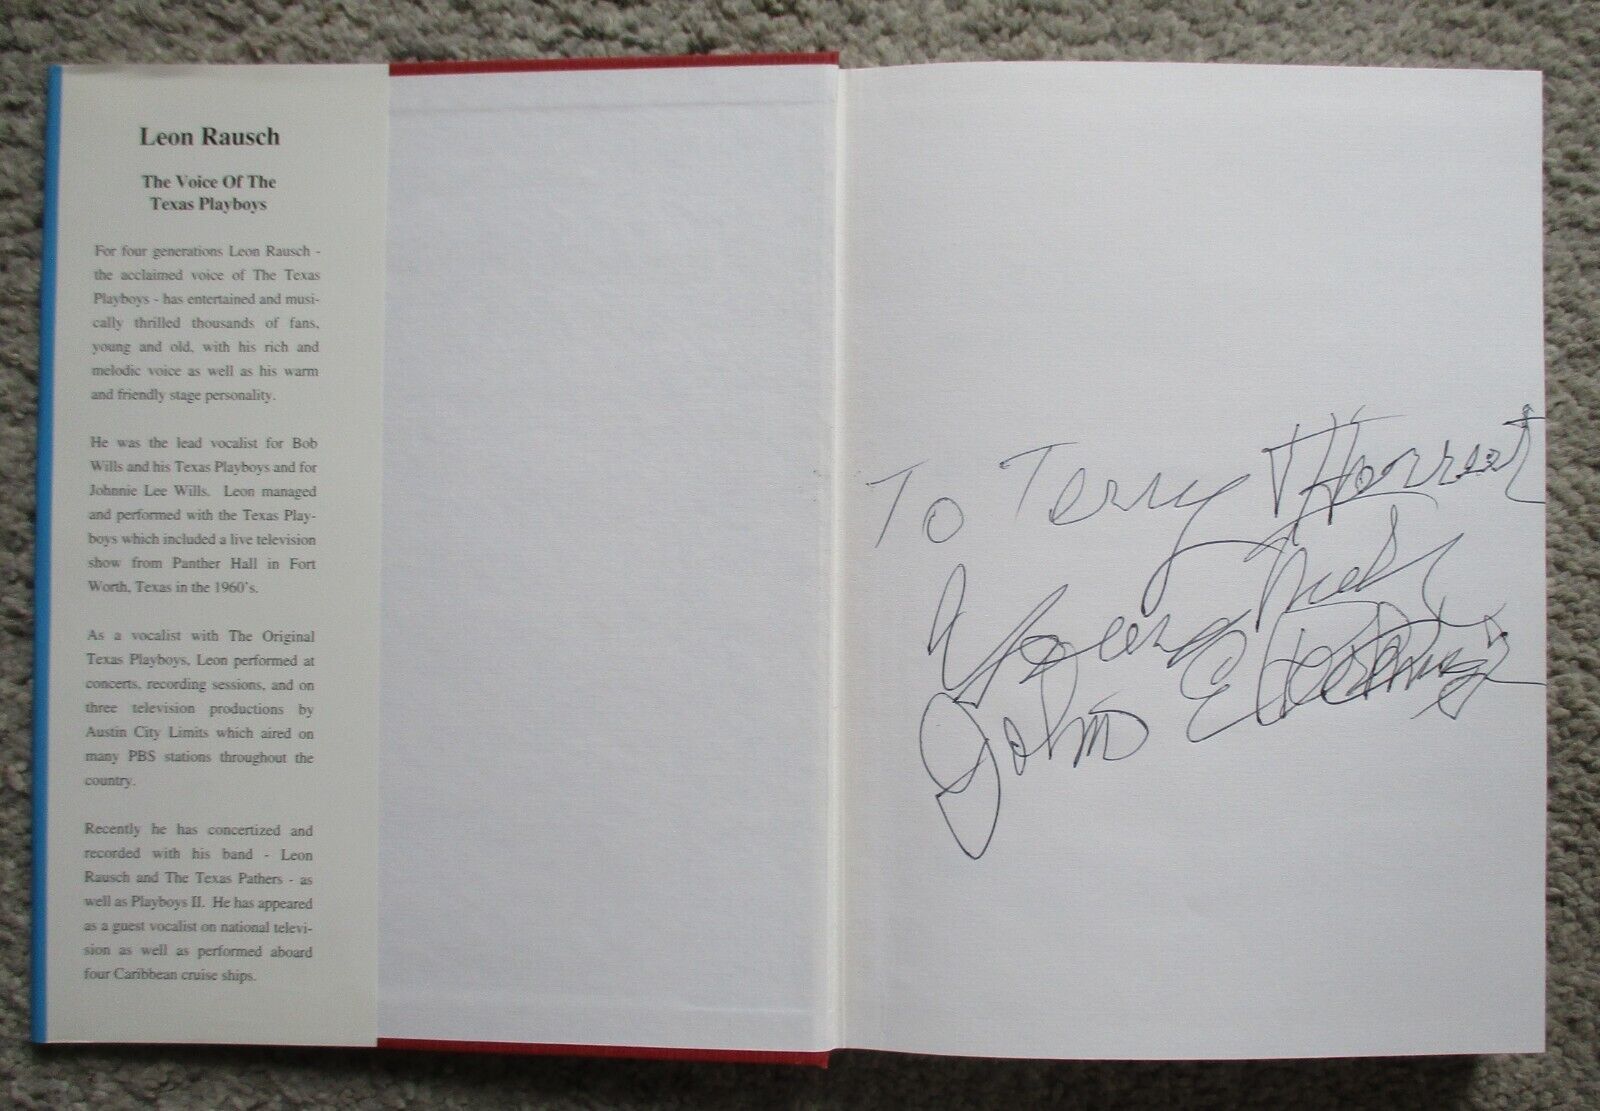 Leon Rausch
The Voice Of The
Texas Playboys
For four generations Leon Rausch -
the acclaimed voice of The Texas
Playboys - has entertained and musi-
cally thrilled thousands of fans,
young and old, with his rich and
melodic voice as well as his warm
and friendly stage personality.
He was the lead vocalist for Bob
Wills and his Texas Playboys and for
Johnnie Lee Wills. Leon managed
and performed with the Texas Play-
boys which included a live television
show from Panther Hall in Fort
Worth, Texas in the 1960's.
As a vocalist with The Original
Texas Playboys, Leon performed at
concerts, recording sessions, and on
three television productions by
Austin City Limits which aired on
many PBS stations throughout the
country.
Recently he has concertized and
recorded with his band - Leon
Rausch and The Texas Pathers - as
well as Playboys II. He has appeared
as a guest vocalist on national televi-
sion as well as performed aboard
four Caribbean cruise ships.
To Terry
John E